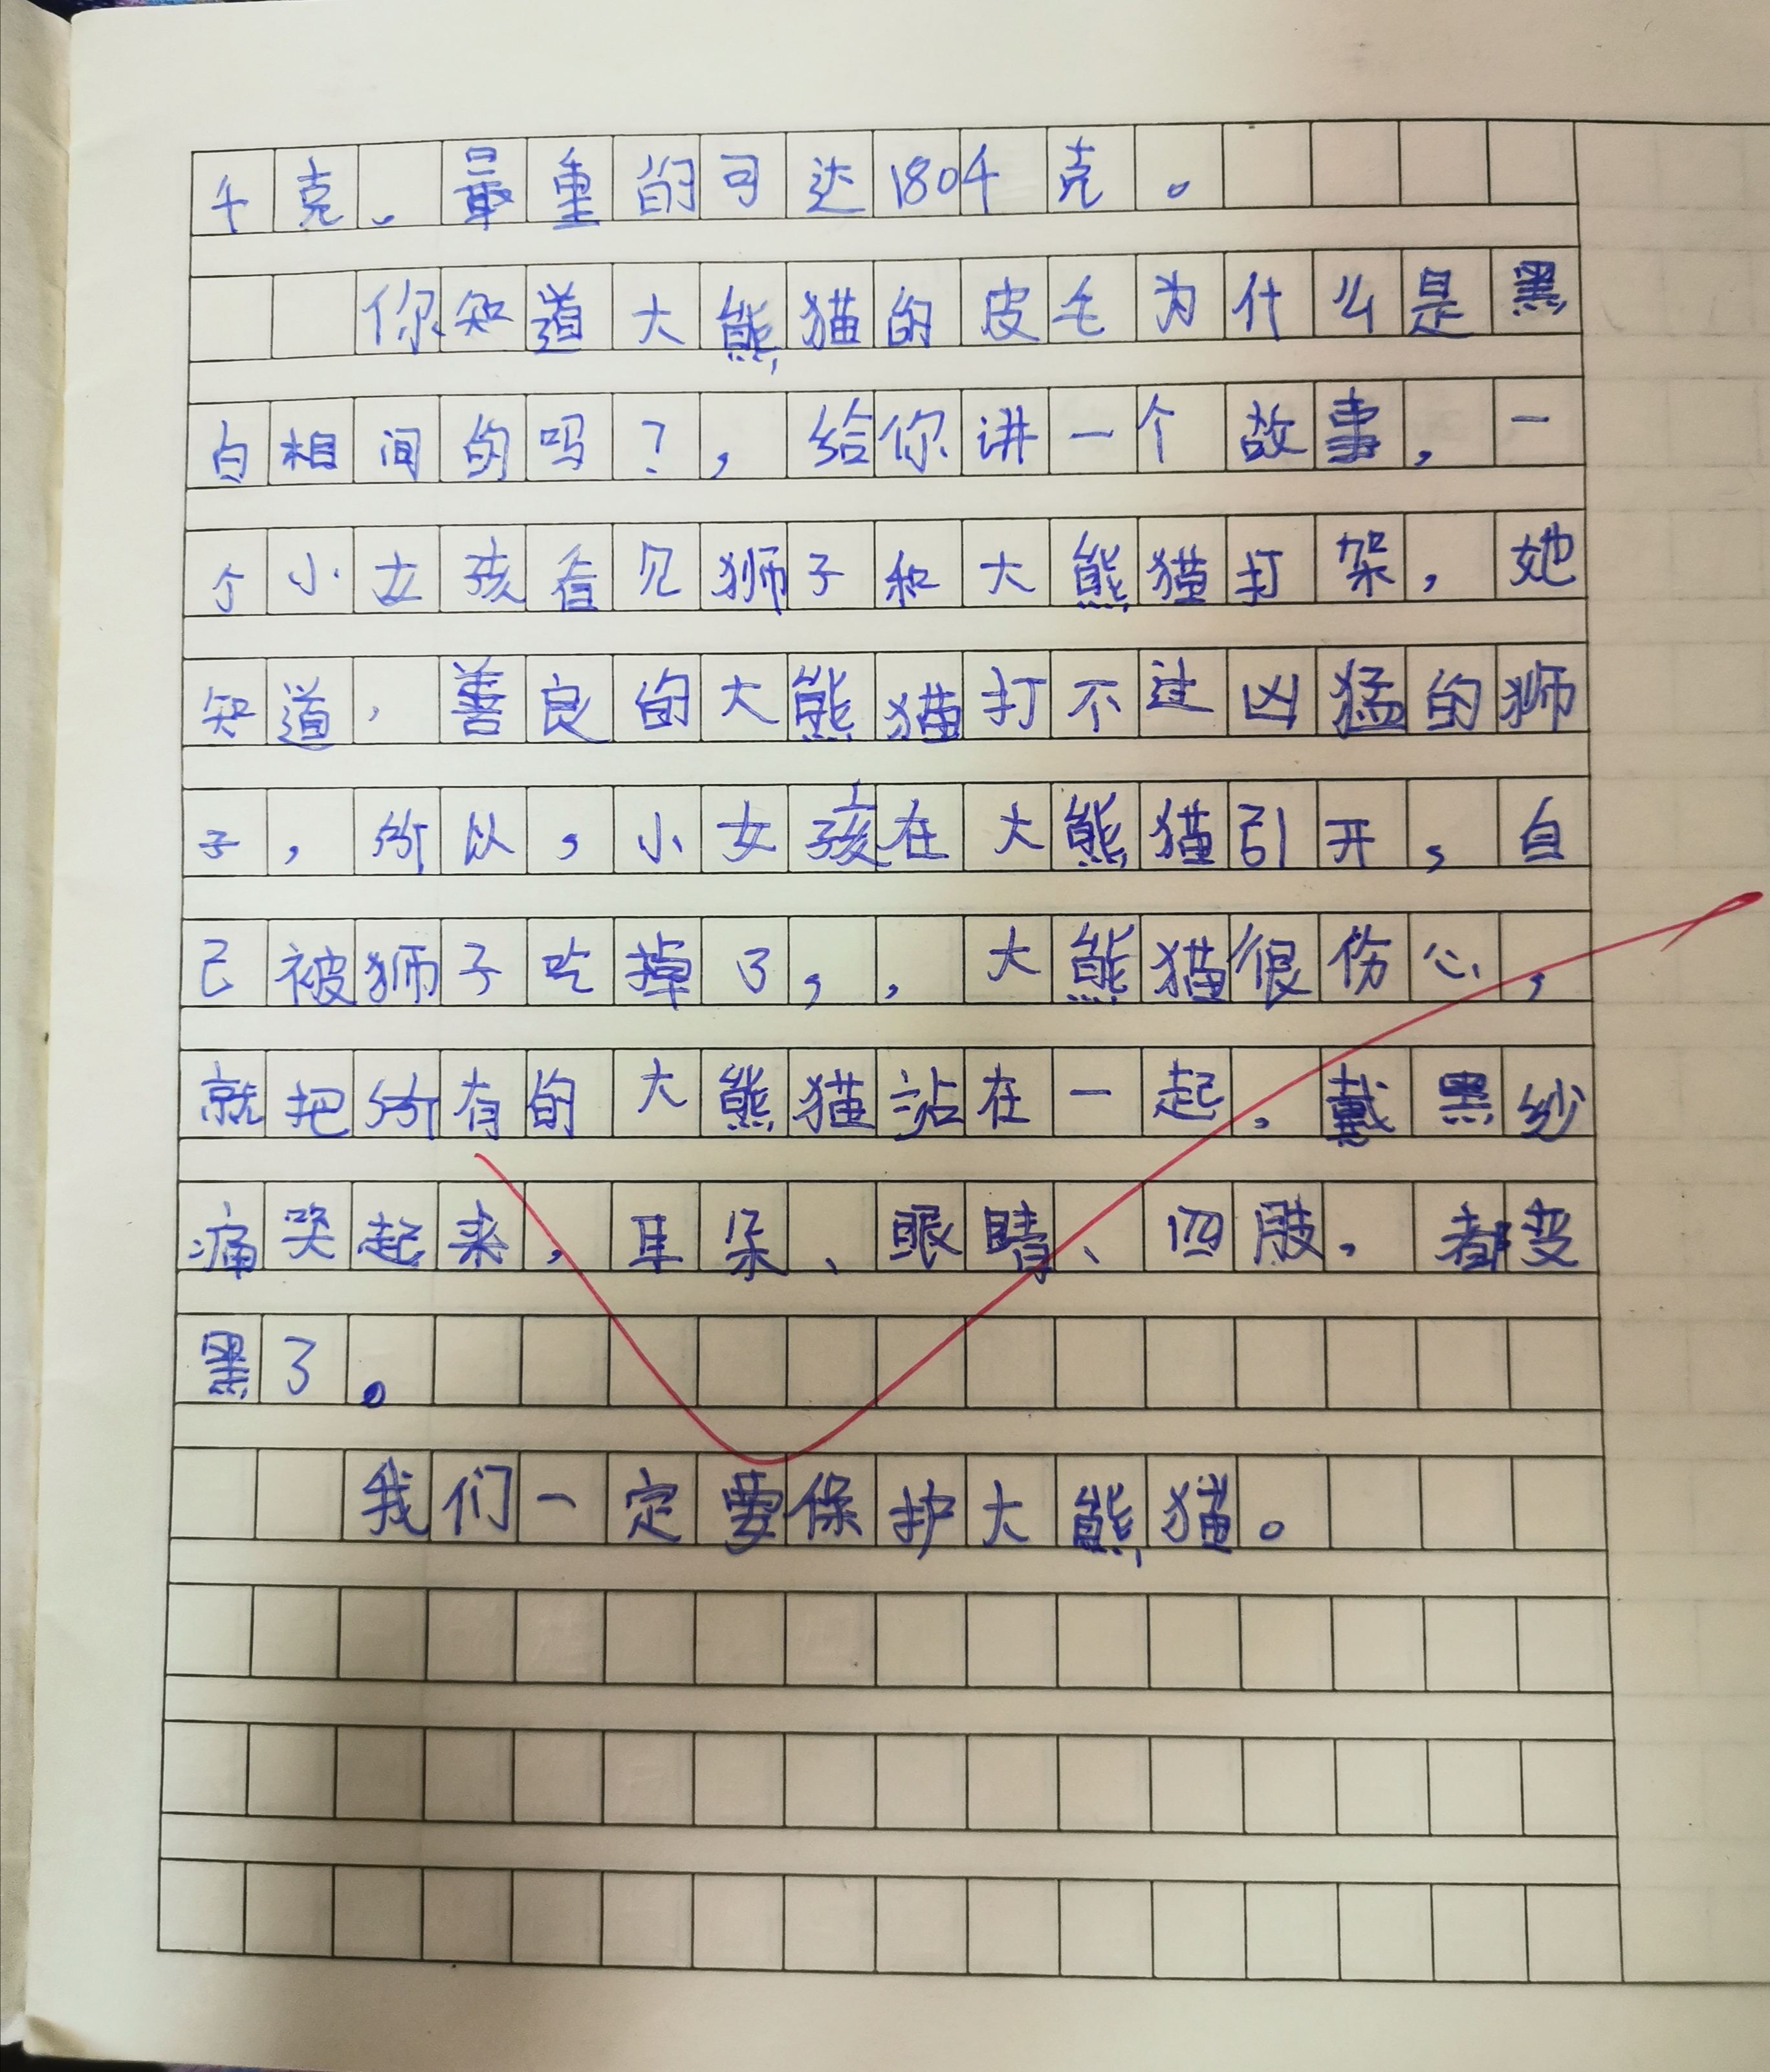 千克。最重的可达180千克。
你知道大熊猫的皮毛为什么是黑
白相间的吗?,给你讲一个故事,一
个小女孩看见狮子和大熊猫打架,她
知道,善良的大熊猫打不过凶猛的狮
子,所以,小女孩在大熊猫引开,自
己被狮子吃掉了,,大熊猫很伤心,
就把所有的大熊猫站在一起,戴黑纱
痛哭起来,耳朵、眼睛、四肢,都变
黑了。
我们一定要保护大熊猫。